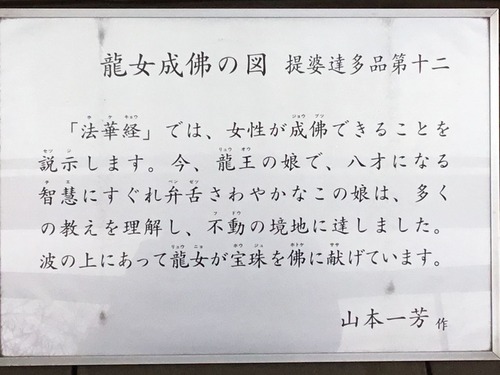 龍女成佛の図 提婆達多品第十二
「法華経」では、女性が成佛できることを
説示します。今、龍王の娘で、八才になる
智慧にすぐれ弁舌さわやかなこの娘は、多く
の教えを理解し、不動の境地に達しました。
波の上にあって龍女が宝珠を佛に献げています。
山本一芳 作